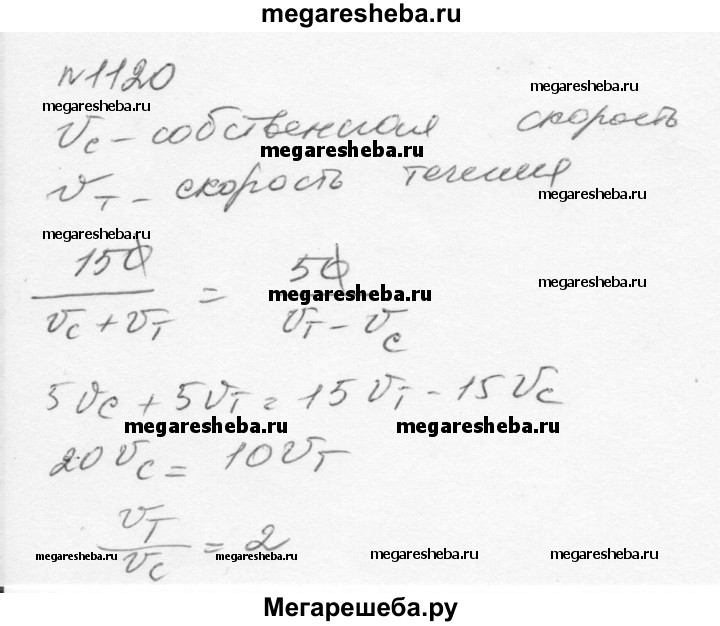 megaresheba.ru
№1120
megaresheba.ru
megaresheba.ru
Vc – собственная скорость
megaresheba.ru
Vт – скорость течения
megaresheba.ru
megaresheba.ru
150 / (Vc + Vт) = 50 / (Vт – Vc)
megaresheba.ru
megaresheba.ru
5Vc + 5Vт = 15Vт – 15Vc
megaresheba.ru megaresheba.ru
20Vc = 10Vт
Vт / Vc = 2
megaresheba.ru megaresheba.ru megaresheba.ru megaresheba.ru
Мегарешеба.ру